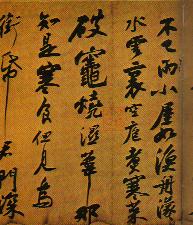 不已雨小屋如漁舟濛
水雲裏空庖煮寒菜
破竈燒濕葦那
知是寒食但見烏
銜帋君門深